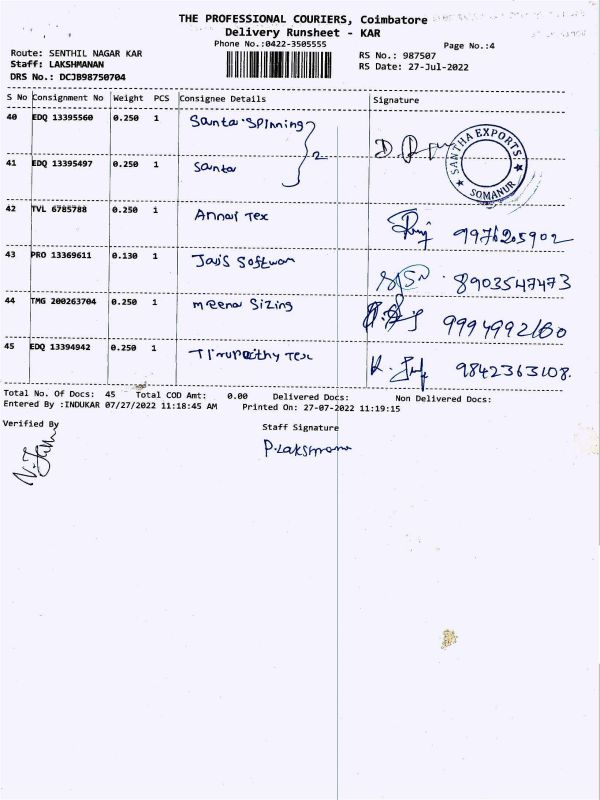 THE PROFESSIONAL COURIERS, Coimbatore
Delivery Runsheet - KAR
Phone No.:0422-3505555
Page No.:4
Route: SENTHIL NAGAR KAR
RS No.: 987507
Staff: LAKSHMANAN
RS Date: 27-Jul-2022
DRS No.: DCJB98750704
S No Consignment No Weight PCS Consignee Details Signature
40 EDQ 13395560 0.250 1 Santa Spinning
2
SANTHA EXPORTS. SOMANUR
41 EDQ 13395497 0.250 1 Santa
42 TVL 6785788 0.250 1 Annai Tex 9976205902
43 PRO 13369611 0.130 1 Jais Softwar 8903547473
44 TMG 200263704 0.250 1 meena Sizing 9994992160
45 EDQ 13394942 0.250 1 Tirupathy Tex 9842363108.
Total No. Of Docs: 45 Total COD Amt: 0.00 Delivered Docs: Non Delivered Docs:
Entered By :INDUKAR 07/27/2022 11:18:45 AM Printed On: 27-07-2022 11:19:15
Verified By Staff Signature
P.Lakshmana